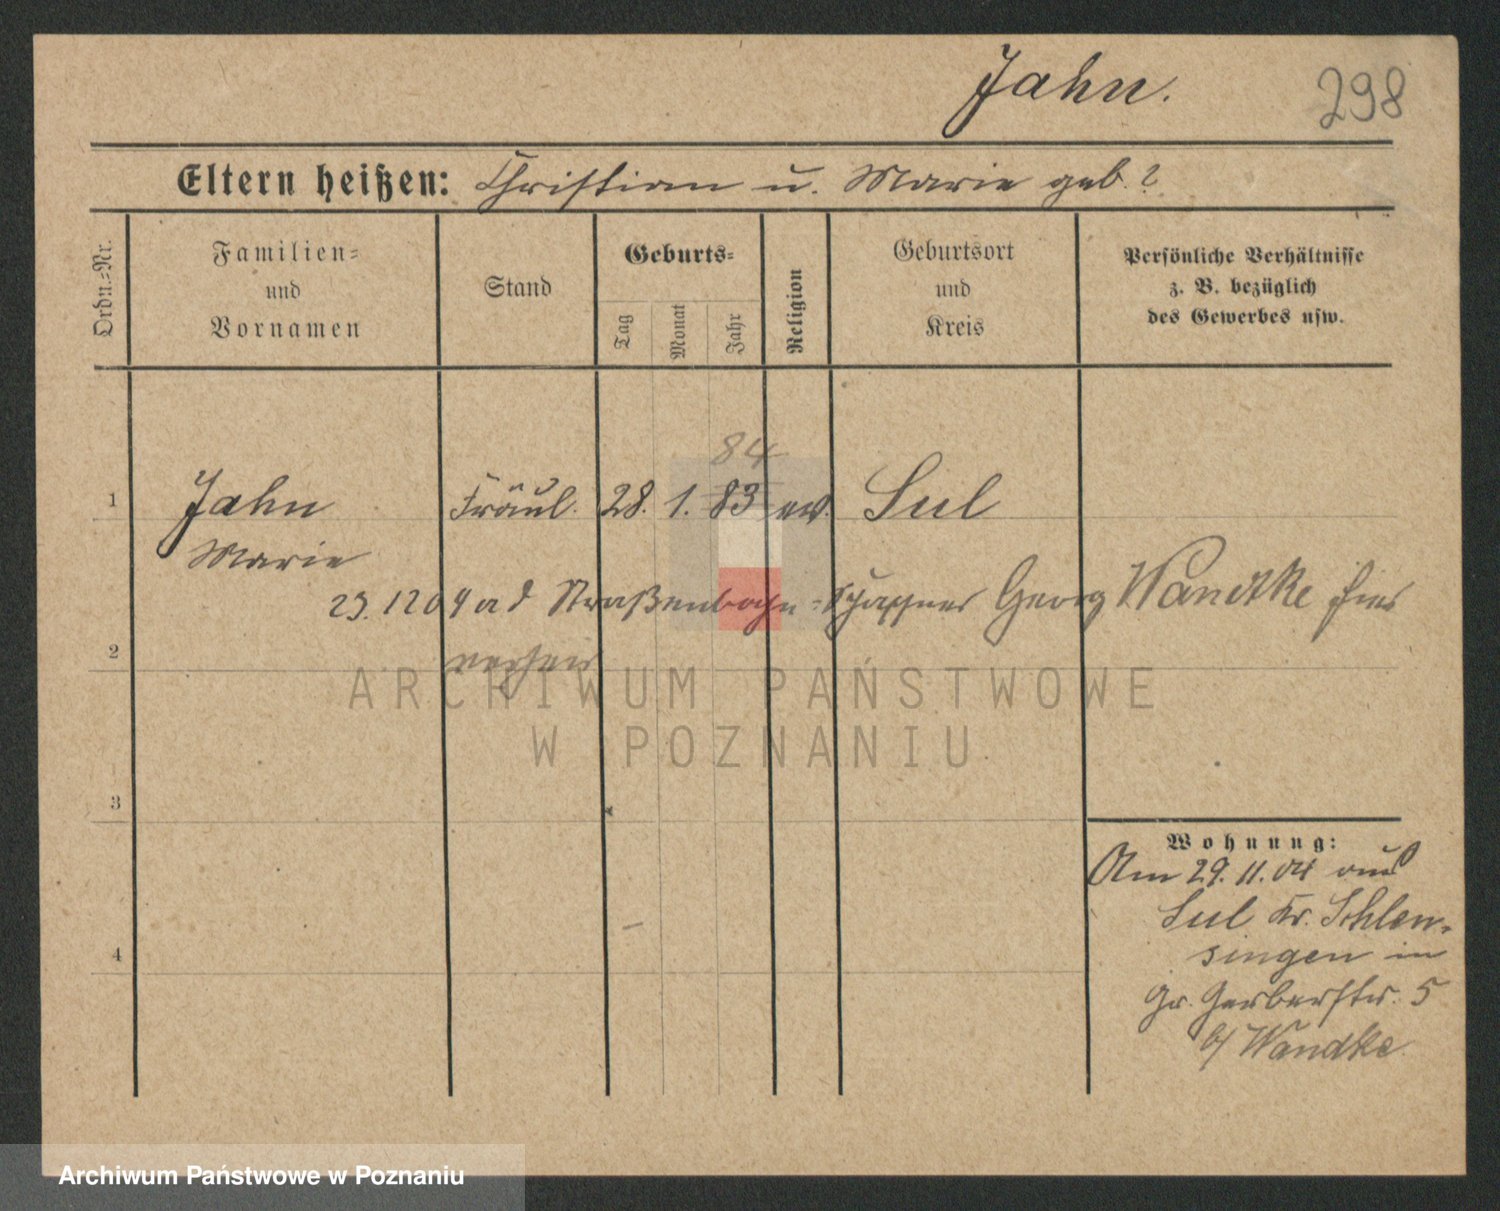 Jahn.
298
Eltern heißen: Christian u. Marie geb. ?
Ordn.-Nr.
Familien-
und
Vornamen
Stand
Geburts-
Tag
Monat
Jahr
Religion
Geburtsort
und
Kreis
Persönliche Verhältnisse
z. B. bezüglich
des Gewerbes usw.
84
1 Jahn Fräul. 28. 1. 83 ev. Sul
Marie
23.1204 a d Straßenbahn-Schaffner Georg Wandtke hier
2
verheir
ARCHIWUM PAŃSTWOWE
W POZNANIU
3
Wohnung:
Am 29.11.04 aus
Sul Kr. Schleu-
4
singen in
Gr. Gerberstr. 5
b/ Wandke
Archiwum Państwowe w Poznaniu